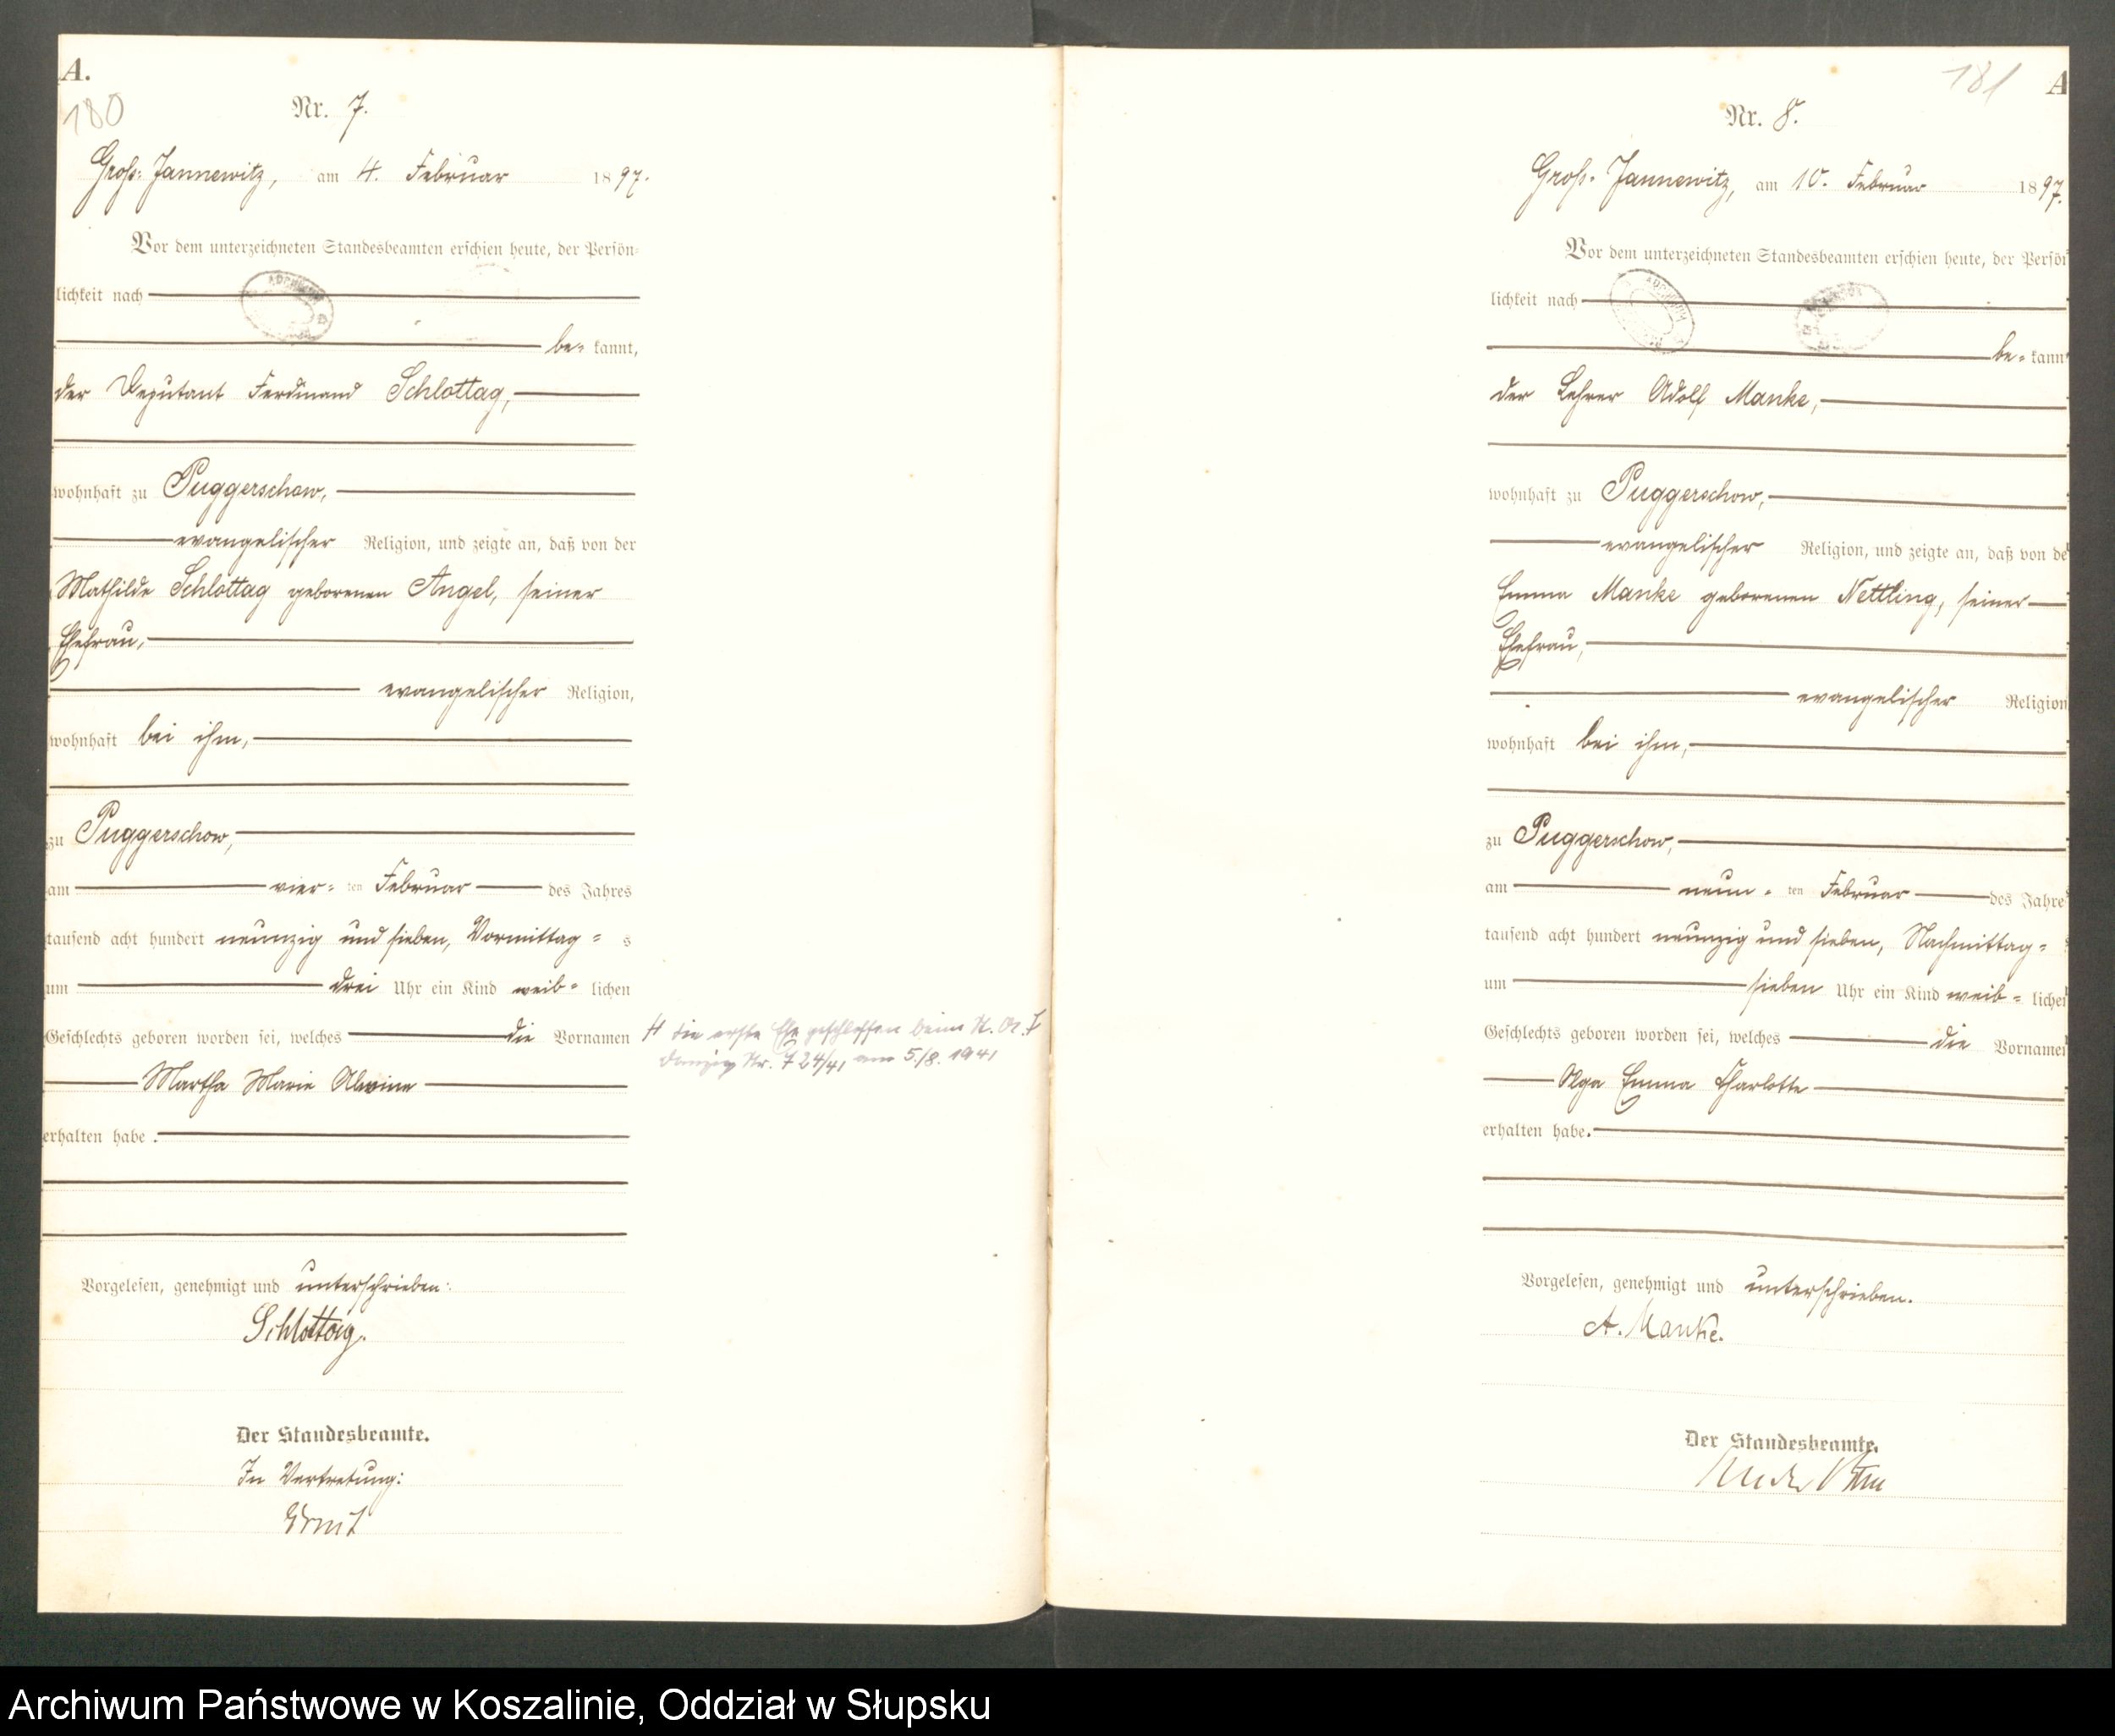 A.
180
Nr. 7.
Groß-Jannewitz, am 4. Februar 1897.
Vor dem unterzeichneten Standesbeamten erschien heute, der Persön-
lichkeit nach
be- kannt,
der Deputant Ferdinand Schlottag,
wohnhaft zu Puggerschow,
evangelischer Religion, und zeigte an, daß von der
Mathilde Schlottag geborenen Angel, seiner
Ehefrau,
evangelischer Religion,
wohnhaft bei ihm,
zu Puggerschow,
am vier- ten Februar des Jahres
tausend acht hundert neunzig und sieben, Vormittag- s
um drei Uhr ein Kind weib- lichen
Geschlechts geboren worden sei, welches die Vornamen
Martha Marie Alwine
erhalten habe.
Vorgelesen, genehmigt und unterschrieben:
Schlottag.
Der Standesbeamte.
In Vertretung:
die erste Ehe geschlossen beim St. A. I
Danzig Nr. 724/41 am 5./8. 1941
181
A
Nr. 8.
Groß-Jannewitz, am 10. Februar 1897.
Vor dem unterzeichneten Standesbeamten erschien heute, der Persön
lichkeit nach
be- kannt
der Lehrer Adolf Manke,
wohnhaft zu Puggerschow,
evangelischer Religion, und zeigte an, daß von de
Emma Manke geborenen Nettling, seiner
Ehefrau,
evangelischer Religion
wohnhaft bei ihm,
zu Puggerschow,
am neun- ten Februar des Jahre
tausend acht hundert neunzig und sieben, Nachmittag-
um sieben Uhr ein Kind weib- lichen
Geschlechts geboren worden sei, welches die Vornamen
Olga Emma Charlotte
erhalten habe.
Vorgelesen, genehmigt und unterschrieben.
A. Manke.
Der Standesbeamte.
Archiwum Państwowe w Koszalinie, Oddział w Słupsku